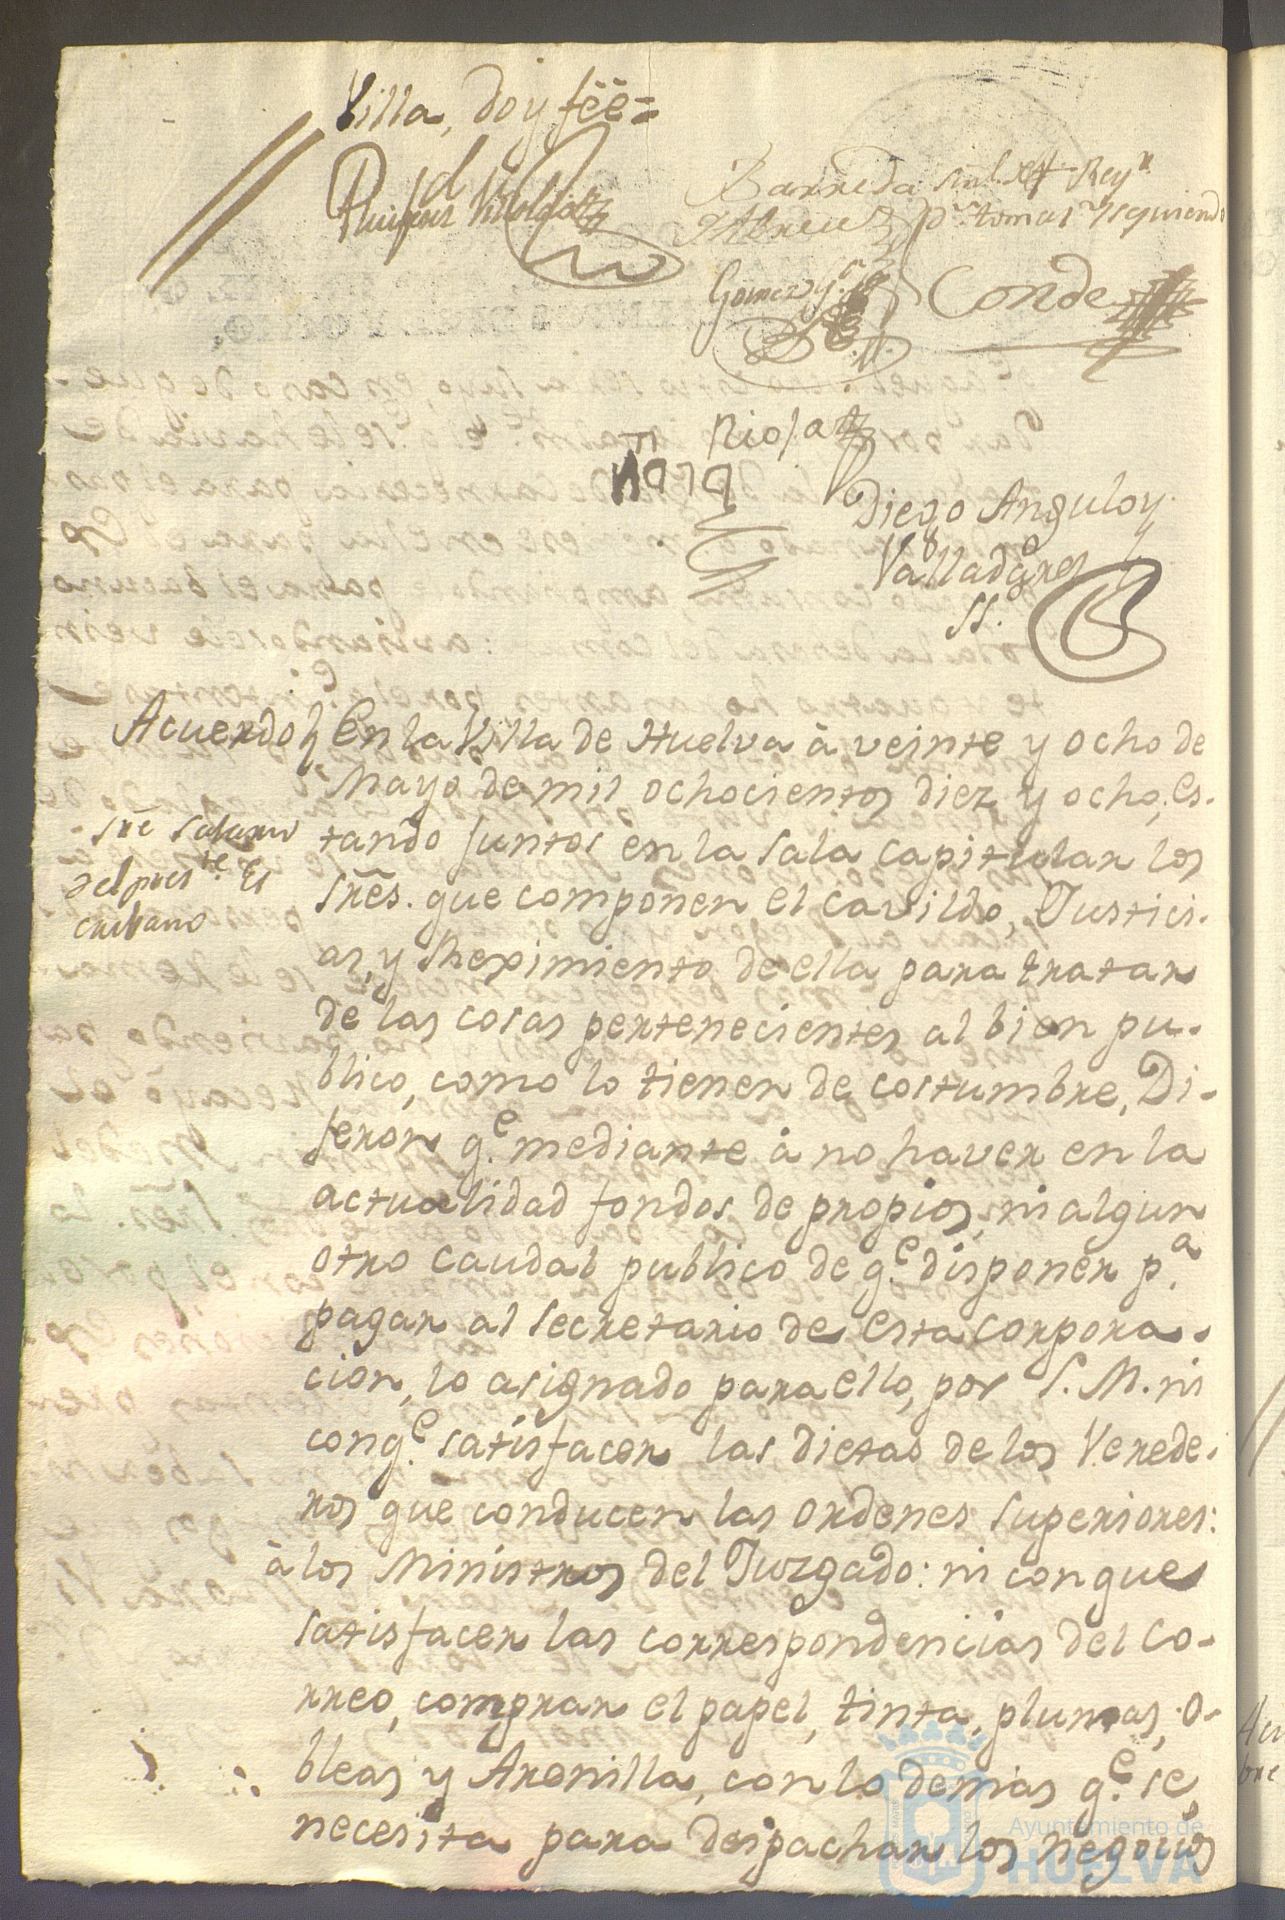 Villa, doy fēē=
Barreda
Abreu
p.r tomas Ysquierdo
Gomez
Conde
Riofa
Mora
Diego Angulo y
Valladares
SS.
Acuerdo
sr̄e salario
del pres.te Es
cribano
En la Villa de Huelva à veinte y ocho de
Mayo de mil ochocientos diez y ocho, es-
tando juntos en la sala capitular los
Sr̄es. que componen el cavildo, Justici-
as, y Reximiento de ella para tratar
de las cosas pertenecientes al bien pu-
blico, como lo tienen de costumbre, Di-
jeron q.e mediante à no haver en la
actualidad fondos de propios, ni algun
otro caudal publico de q.e disponer p.a
pagar al Secretario de esta corpora-
cion, lo asignado para ello, por S. M. ni
con q.e satisfacer las dietas de los Verede-
ros que conducen las ordenes superiores:
à los Ministros del Juzgado: ni con que
satisfacer las correspondencias del co-
rreo, comprar el papel, tinta, plumas, o-
bleas y Arenilla, con lo demas q.e se
necesita para despachar los negocios
Ayuntamiento de
HUELVA